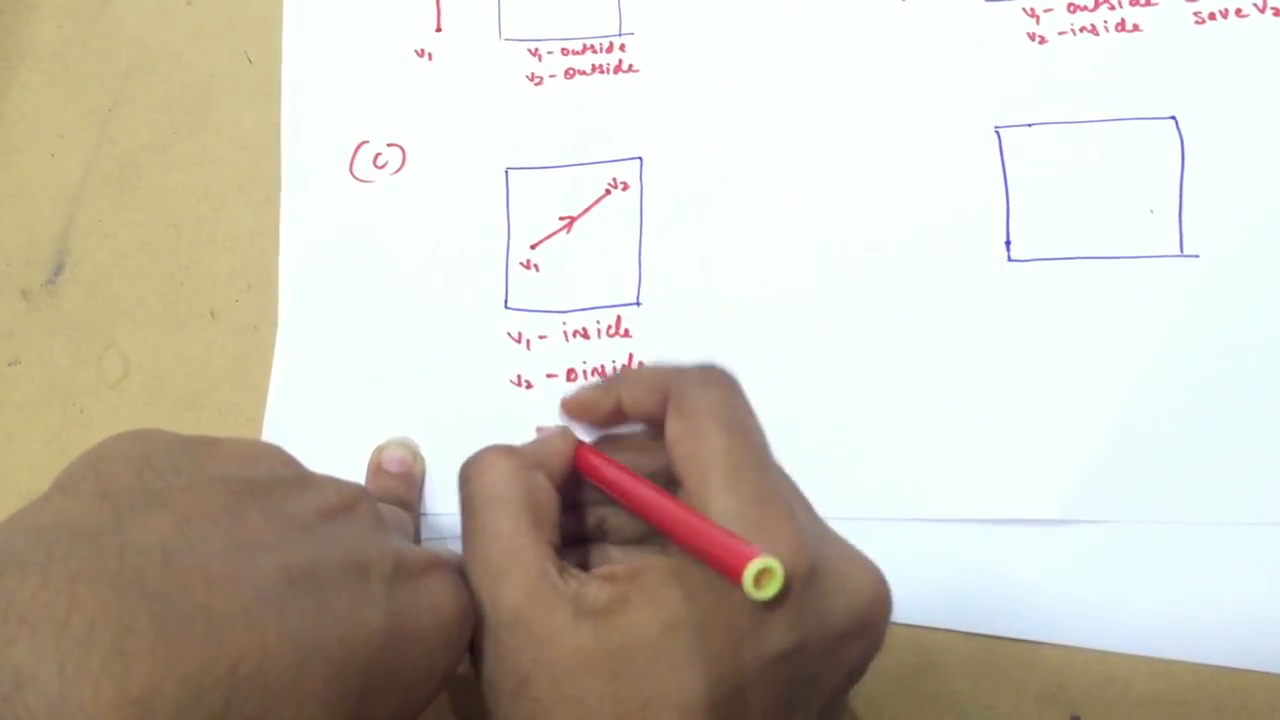 v1
v1 - outside
v2 - outside
v1 - outside
v2 - inside
save v2
(c)
v2
v1
v1 - inside
v2 - inside